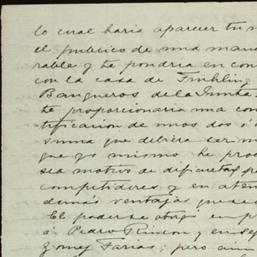 lo cual haria aparecer tu n
el publico de una mane
rable y te pondria en con
con la casa de
Banqueros de la
te proporcionaria una
tificacion de unos dos ó
suma que debiera ser m
que yo mismo, he pro
sea motivo de dificultad p
competidores y en aten
demás ventajas que
El poder se abrió en p
á Pedro Rincon y en se
Gomez Farias; pero aun